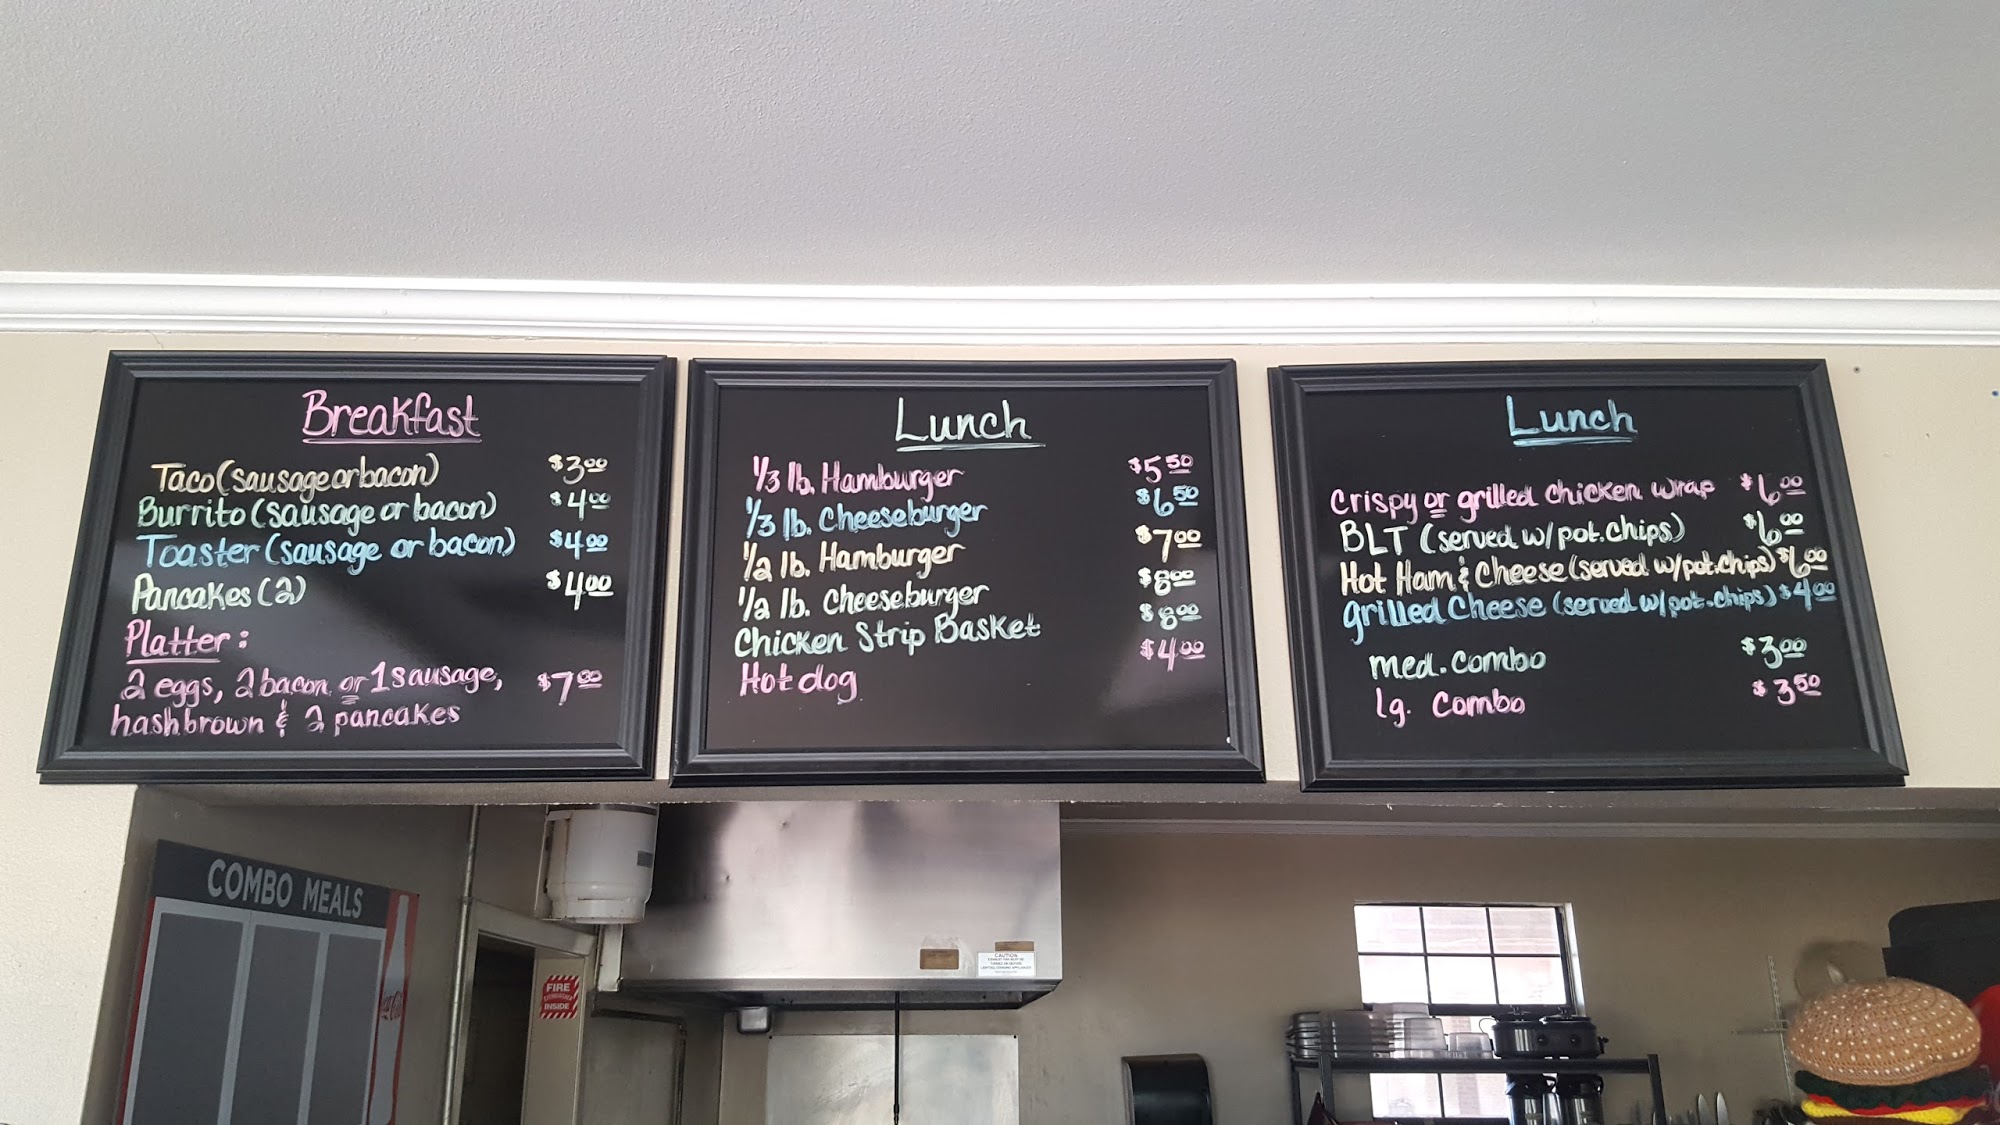 Breakfast
Taco (sausage or bacon) $3.00
Burrito (sausage or bacon) $4.00
Toaster (sausage or bacon) $4.00
Pancakes (2) $4.00
Platter:
2 eggs, 2 bacon or 1 sausage, $7.00
hashbrown & 2 pancakes
Lunch
1/3 lb. Hamburger $5.50
1/3 lb. Cheeseburger $6.50
1/2 lb. Hamburger $7.00
1/2 lb. Cheeseburger $8.00
Chicken Strip Basket $8.00
Hotdog $4.00
Lunch
Crispy or grilled chicken wrap $6.00
BLT (served w/pot.chips) $6.00
Hot Ham & Cheese (served w/pot.chips) $6.00
grilled Cheese (served w/pot.chips) $4.00
med. combo $3.00
lg. combo $3.50
COMBO MEALS
FIRE
EXTINGUISHER
INSIDE
CAUTION